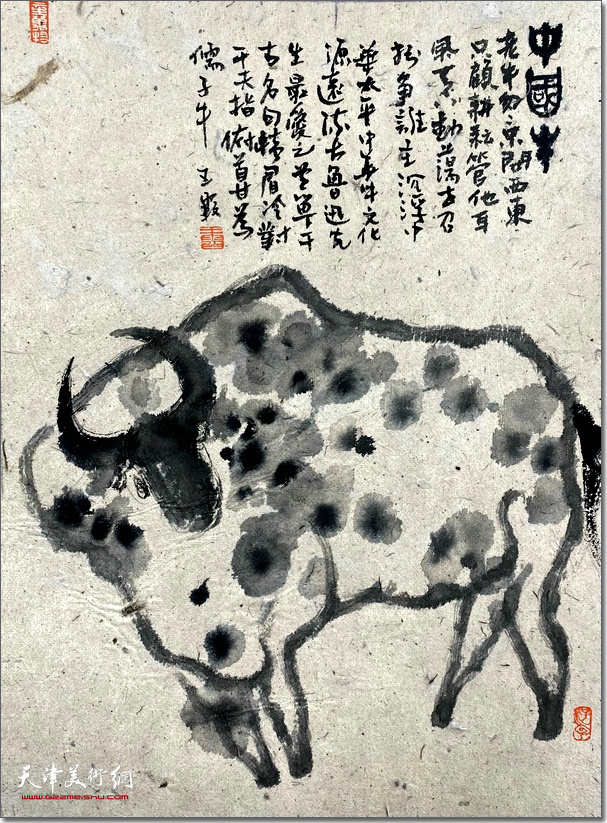 中國牛
老牛勿 鬧西東
只顧耕耘管他
風 動蕩
爭誰主沉浮中
華太平中華牛文化
源遠流長魯迅先
生最愛之 千
古名句橫眉冷對
千夫指俯首甘為
孺子牛 王
天津美術網
www.022meishu.com